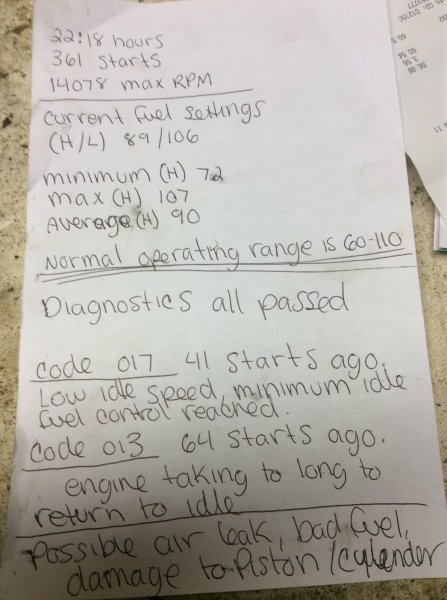 22:18 hours
361 starts
14078 max RPM
current fuel settings
(H/L) 89/106
minimum (H) 72
max (H) 107
Average (H) 90
Normal operating range is 60-110
Diagnostics all passed
code 017 41 starts ago.
Low idle speed, minimum idle
fuel control reached.
code 013 64 starts ago.
engine taking to long to
return to idle
possible air leak, bad fuel,
damage to Piston/cylender